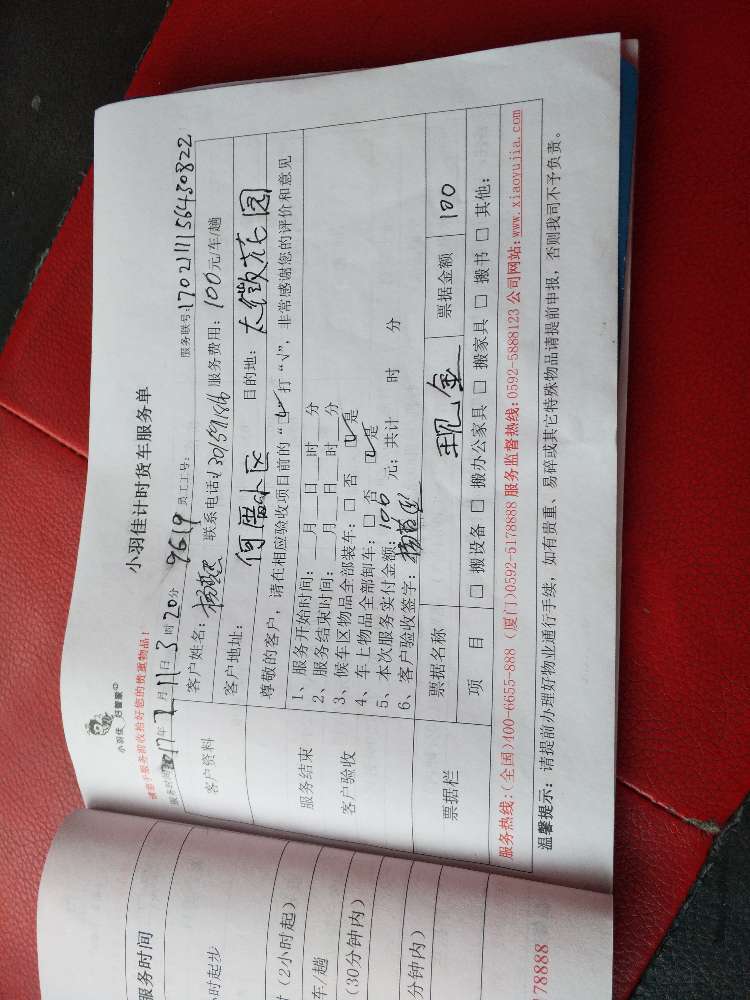 小羽佳 好管家
请您于服务前收拾好您的贵重物品!
小羽佳计时货车服务单
服务联号:170211156430822
服务时间2017年2月11日3时20分 9619 员工工号:
客户资料
客户姓名: 联系电话: 服务费用: 100元/车/趟
客户地址: 何厝小区 目的地: 花园
服务结束
客户验收
尊敬的客户,请在相应验收项目前的“□”打“√”,非常感谢您的评价和意见
1、服务开始时间: 月 日 时 分
2、服务结束时间: 月 日 时 分
3、候车区物品全部装车: □ 否 ☑ 是
4、车上物品全部卸车: □ 否 ☑ 是
5、本次服务实付金额: 100 元; 共计 时 分
6、客户验收签字:
票据栏
票据名称 现金 票据金额 100
项 目 □ 搬设备 □ 搬办公家具 □ 搬家具 □ 搬书 □ 其他:
服务热线:(全国)400-6655-888 (厦门)0592-5178888 服务监督热线:0592-5888123 公司网站:www.xiaoyujia.com
温馨提示: 请提前办理好物业通行手续, 如有贵重、易碎或其它特殊物品请提前申报, 否则我司不予负责。
服务时间
时起步
(2小时起)
车/趟
(30分钟内)
分钟内)
78888